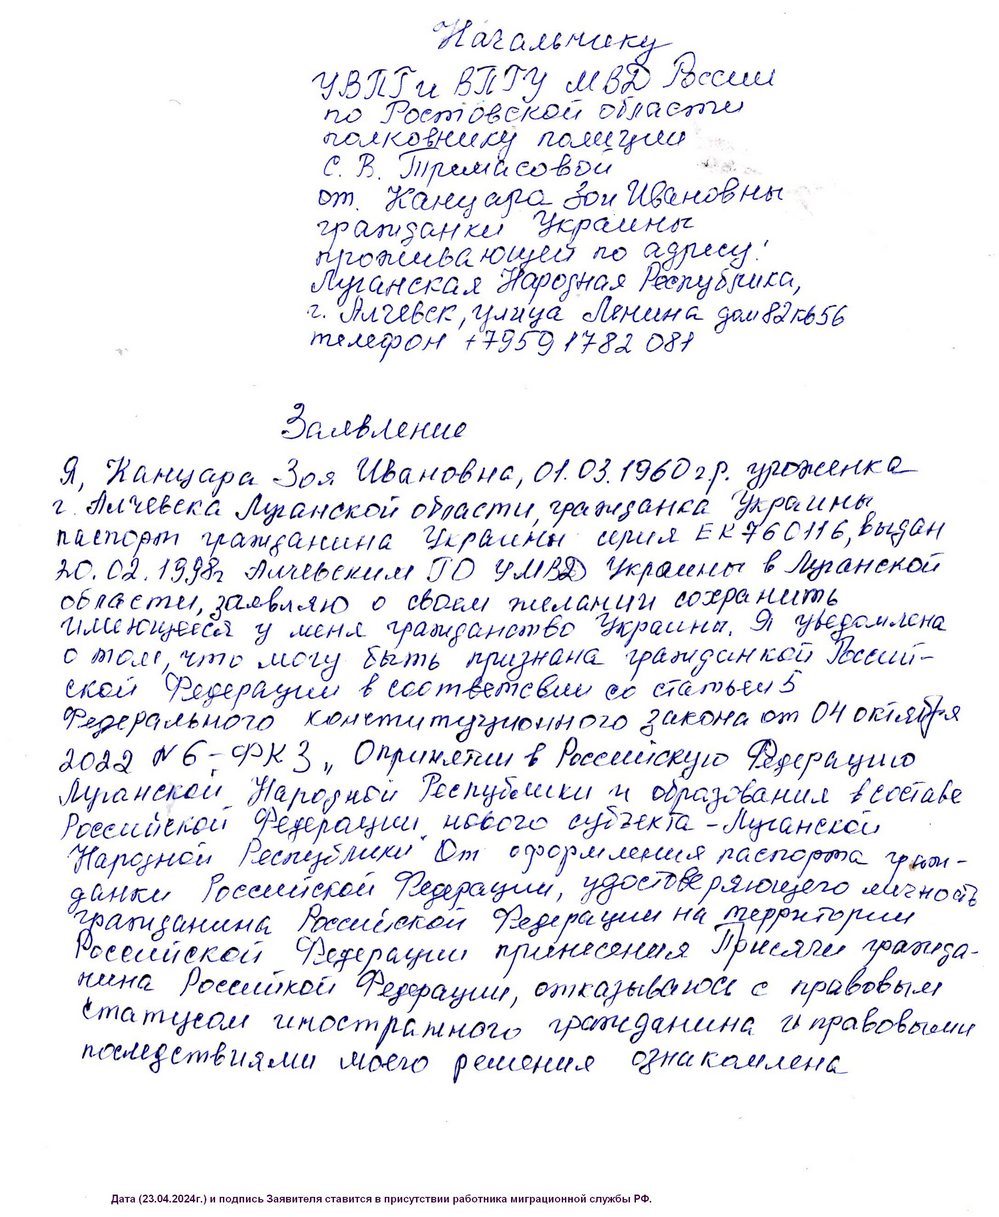 Начальнику
УВПГи ВПГУ МВД России
по Ростовской области
полковнику полиции
С. В. Тримасовой
от. Канцара Зои Ивановны
гражданки Украины
проживающей по адресу:
Луганская Народная Республика,
г. Алчевск, улица Ленина дом 82 кв 56
телефон +7959 1782 081
Заявление
Я, Канцара Зоя Ивановна, 01.03.1960г.р. уроженка
г. Алчевска Луганской области, гражданка Украины
паспорт гражданина Украины серия ЕК 760116, выдан
20.02.1998г Алчевским ГО УМВД Украины в Луганской
области, заявляю о своем желании сохранить
имеющееся у меня гражданство Украины. Я уведомлена
о том, что могу быть признана гражданкой Россий-
ской Федерации в соответсвии со статьей 5
Федерального конституционного закона от 04 октября
2022 N 6-ФКЗ „О принятии в Российскую Федерацию
Луганской Народной Республики и образования в составе
Российской Федерации нового субъекта - Луганской
Народной Республики" От оформления паспорта граж-
данки Российской Федерации, удостоверяющего личность
гражданина Российской Федерации на территории
Российской Федерации принесения Присяги гражда-
нина Российкой Федерации, отказываюсь с правовым
статусом иностранного гражданина и правовыми
последствиями моего решения ознакомлена
Дата (23.04.2024г.) и подпись Заявителя ставится в присутствии работника миграционной службы РФ.